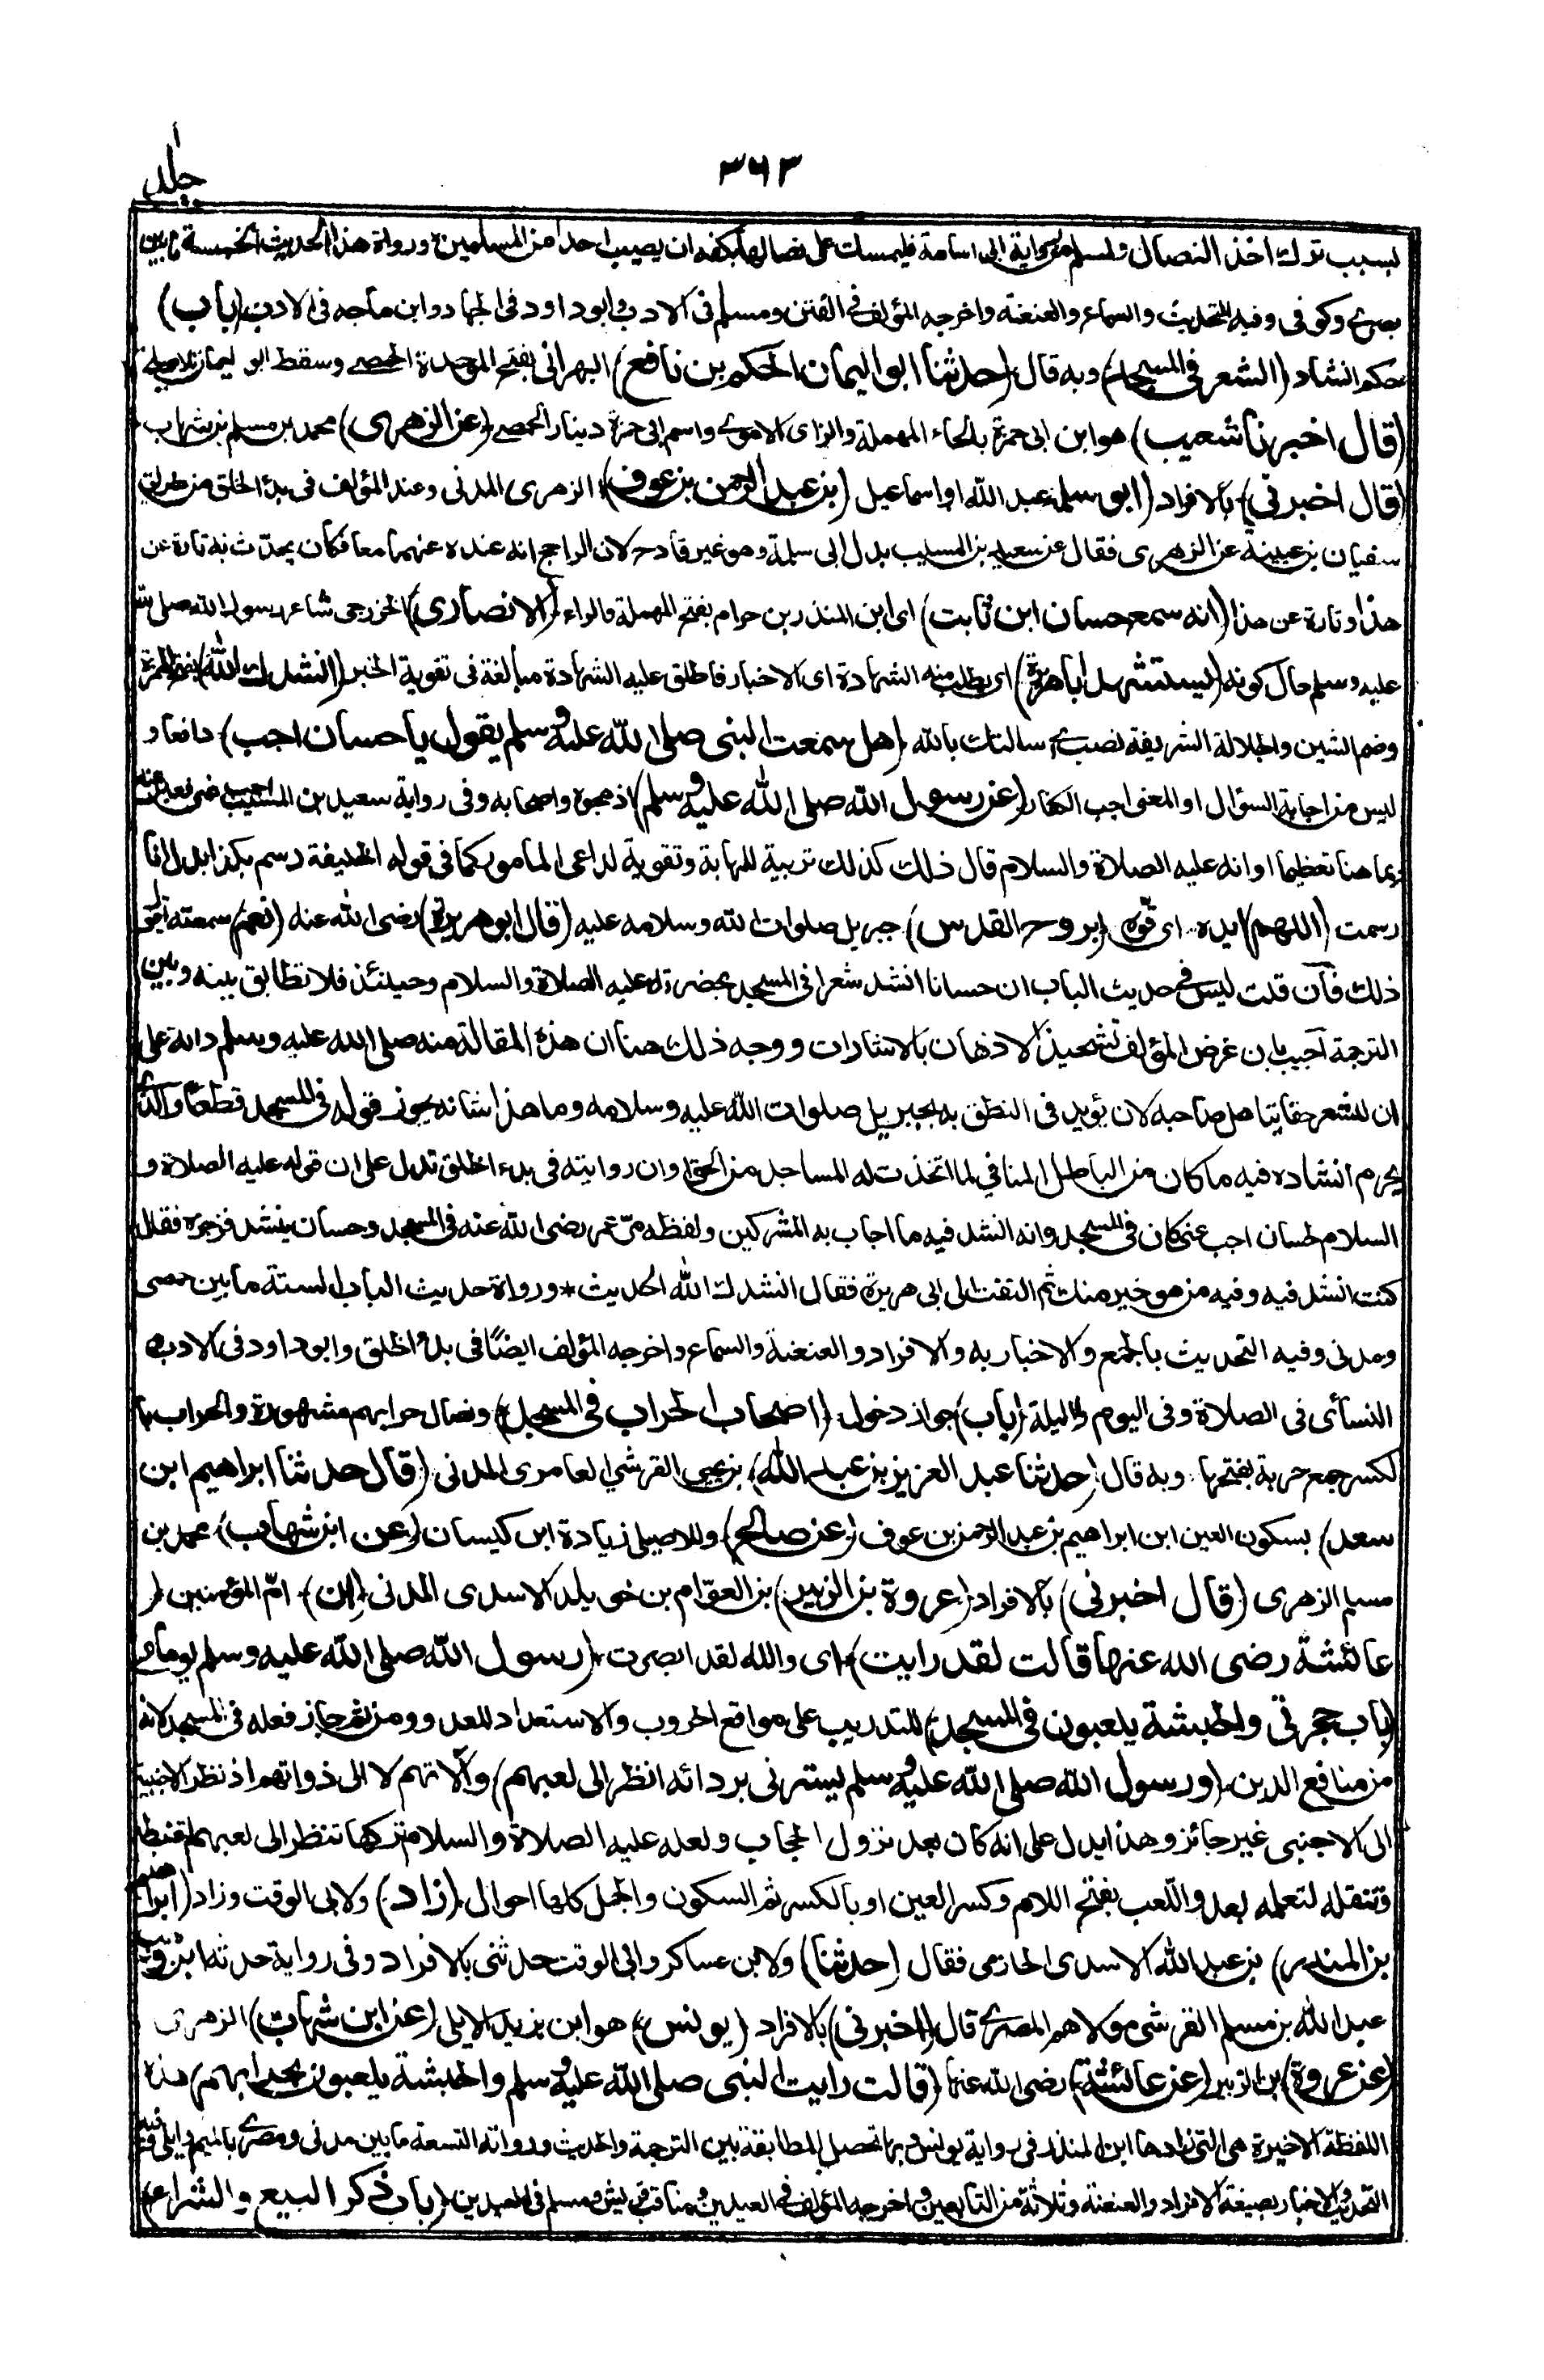 ٣٦٣
جلد ١
بسبب ترك اخذ النصال ولمسلم من رواية ابى اسامة فليمسك على نصالها بكفه ان يصيب احدا من المسلمين ورواة هذا الحديث الخمسة ما بين
بصرى وكوفى وفيه التحديث والسماع والعنعنة واخرجه المؤلف فى الفتن ومسلم فى الادب وابو داود فى الجهاد وابن ماجه فى الادب (باب)
حكم انشاد (الشعر فى المسجد) وبه قال (حدثنا ابو اليمان الحكم بن نافع) البهرانى بفتح الموحدة الحمصى وسقط ابو اليمان للاصيلى
(قال اخبرنا شعيب) هو ابن ابى حمزة بالحاء المهملة والزاى الاموى واسم ابى حمزة دينار الحمصى (عن الزهرى) محمد بن مسلم بن شهاب
(قال اخبرنى) بالافراد (ابو سلمة) عبد الله او اسماعيل (بن عبد الرحمن بن عوف) الزهرى المدنى وعند المؤلف فى بدء الخلق من طريق
سفيان بن عيينة عن الزهرى فقال عن سعيد بن المسيب بدل ابى سلمة وهو غير قادح لان الراجح انه عنده عنهما معا فكان يحدّث به تارة عن
هذا وتارة عن هذا (انه سمع حسان ابن ثابت) اى ابن المنذر بن حرام بفتح المهملة والراء (الانصارى) الخزرجى شاعر رسول الله صلى الله
عليه وسلم حال كونه (يستشهد ابا هريرة) اى يطلب منه الشهادة اى الاخبار فاطلق عليه الشهادة مبالغة فى تقوية الخبر (انشدك الله) بفتح الهمزة
وضم الشين والجلالة الشريفة نصب اى سالتك بالله (هل سمعت النبى صلى الله عليه وسلم يقول يا حسان اجب) دافعا و
ليس من اجابة السؤال او المعنى اجب الكفار (عن رسول الله صلى الله عليه وسلم) اذ هجوه واصحابه وفى رواية سعيد بن المسيب اجب عنى فعبر عنه
بما هنا تعظيما او انه عليه الصلاة والسلام قال ذلك كذلك تربية للمهابة وتقوية لداعى المامور كما فى قوله الخليفة رسم بكذا بدل انا
رسمت (اللهم ايده) اى قوّه (بروح القدس) جبريل صلوات الله وسلامه عليه (قال ابو هريرة) رضى الله عنه (نعم) سمعته يقول
ذلك فان قلت ليس فى حديث الباب ان حسانا انشد شعرا فى المسجد بحضرته عليه الصلاة والسلام وحينئذ فلا تطابق بينه وبين
الترجمة اجيب بان غرض المؤلف تشحيذ الاذهان بالاشارات ووجه ذلك هنا ان هذه المقالة منه صلى الله عليه وسلم دالة على
ان للشعر حقا يتاهل صاحبه لان يؤيد فى النطق به بجبريل صلوات الله عليه وسلامه وما هذا شانه يجوز قوله فى المسجد قطعا والذى
يحرم انشاده فيه ما كان من الباطل المنافى لما اتخذت له المساجد من الحق او ان روايته فى بدء الخلق تدل على ان قوله عليه الصلاة و
السلام لحسان اجب عنى كان فى المسجد وانه انشد فيه ما اجاب به المشركين ولفظه مرّ عمر رضى الله عنه فى المسجد وحسان ينشد فزجره فقال
كنت انشد فيه وفيه من هو خير منك ثم التفت الى ابى هريرة فقال انشدك الله الحديث * ورواة حديث الباب الستة ما بين حمصى
ومدنى وفيه التحديث بالجمع والاخبار به والافراد والعنعنة والسماع واخرجه المؤلف ايضًا فى بدء الخلق وابو داود فى الادب و
النسائى فى الصلاة وفى اليوم والليلة (باب) جواز دخول (اصحاب الحراب فى المسجد) ونصال حرابهم مشهورة والحراب با
لكسر جمع حربة بفتحها وبه قال (حدثنا عبد العزيز بن عبد الله) بن يحيى القرشى العامرى المدنى (قال حدثنا ابراهيم ابن
سعد) بسكون العين ابن ابراهيم بن عبد الرحمن بن عوف (عن صالح) وللاصيلى زيادة ابن كيسان (عن ابن شهاب) محمد بن
مسلم الزهرى (قال اخبرنى) بالافراد (عروة بن الزبير) بن العوّام بن خويلد الاسدى المدنى (ان) امّ المؤمنين (
عائشة رضى الله عنها قالت لقد رايت) اى والله لقد ابصرت (رسول الله صلى الله عليه وسلم يوما على
باب حجرتى والحبشة يلعبون فى المسجد) للتدريب على مواقع الحروب والاستعداد للعدو ومن ثم جاز فعله فى المسجد لانه
من منافع الدين (ورسول الله صلى الله عليه وسلم يسترنى بردائه انظر الى لعبهم) وآلاتهم لا الى ذواتهم اذ نظر الاجنبية
الى الاجنبى غير جائز وهذا يدل على انه كان بعد نزول الحجاب ولعله عليه الصلاة والسلام تركها تنظر الى لعبهم لتضبطه
وتنقله لتعمله بعد واللّعب بفتح اللام وكسر العين او بالكسر ثم السكون والجمل كلها احوال (زاد) ولابى الوقت وزاد (ابراهيم
بن المنذر) بن عبد الله الاسدى الحزامى فقال (حدثنا) ولابن عساكر وابى الوقت حدثنى بالافراد وفى رواية حدثه (ابن وهب)
عبد الله بن مسلم القرشى مولاهم المصرى قال (اخبرنى) بالافراد (يونس) هو ابن يزيد الايلى (عن ابن شهاب) الزهرى
(عن عروة) بن الزبير (عن عائشة) رضى الله عنها (قالت رايت النبى صلى الله عليه وسلم والحبشة يلعبون بحرابهم) هذه
اللفظة الاخيرة هى التى زادها ابن المنذر فى رواية يونس وبها تحصل المطابقة بين الترجمة والحديث ورواته التسعة ما بين مدنى ومصرى بالميم وايلى وفيه
التحديث والاخبار بصيغة الافراد والعنعنة وثلاثة من التابعين واخرجه المؤلف فى العيدين ومناقب قريش ومسلم فى العيدين (باب ذكر البيع والشراء